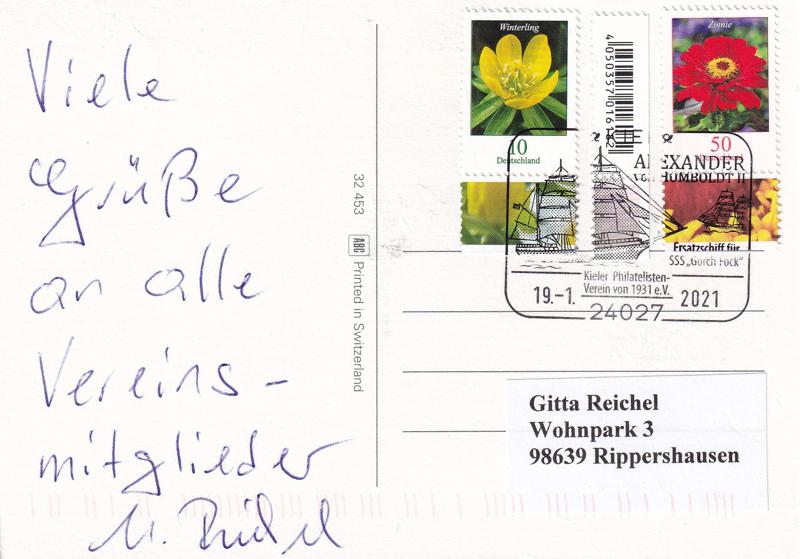 Viele
Grüße
an alle
Vereins-
mitglieder
32 453
ABC
Printed in Switzerland
Winterling
10
Deutschland
4050357016182
Zinnie
50
ALEXANDER
von HUMBOLDT II
Ersatzschiff für
SSS „Gorch Fock"
Kieler Philatelisten-
Verein von 1931 e.V.
19.-1. 2021
24027
Gitta Reichel
Wohnpark 3
98639 Rippershausen